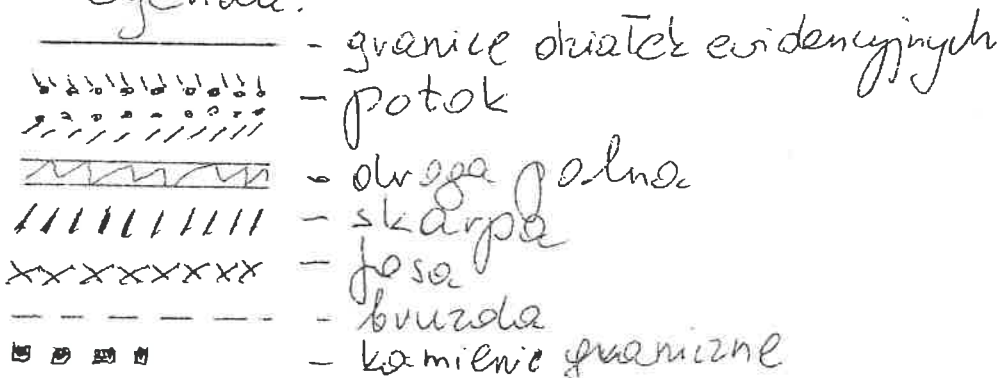 Legenda:
- granice działek ewidencyjnych
- potok
- droga polna
- skarpa
- fosa
- bruzda
- kamienie graniczne